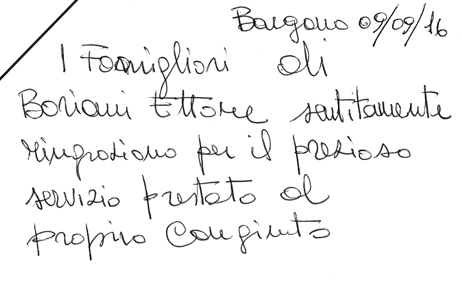 Bargano 09/09/16
I Famigliari di
Boriani Ettore sentitamente
ringraziano per il prezioso
servizio prestato al
proprio Congiunto